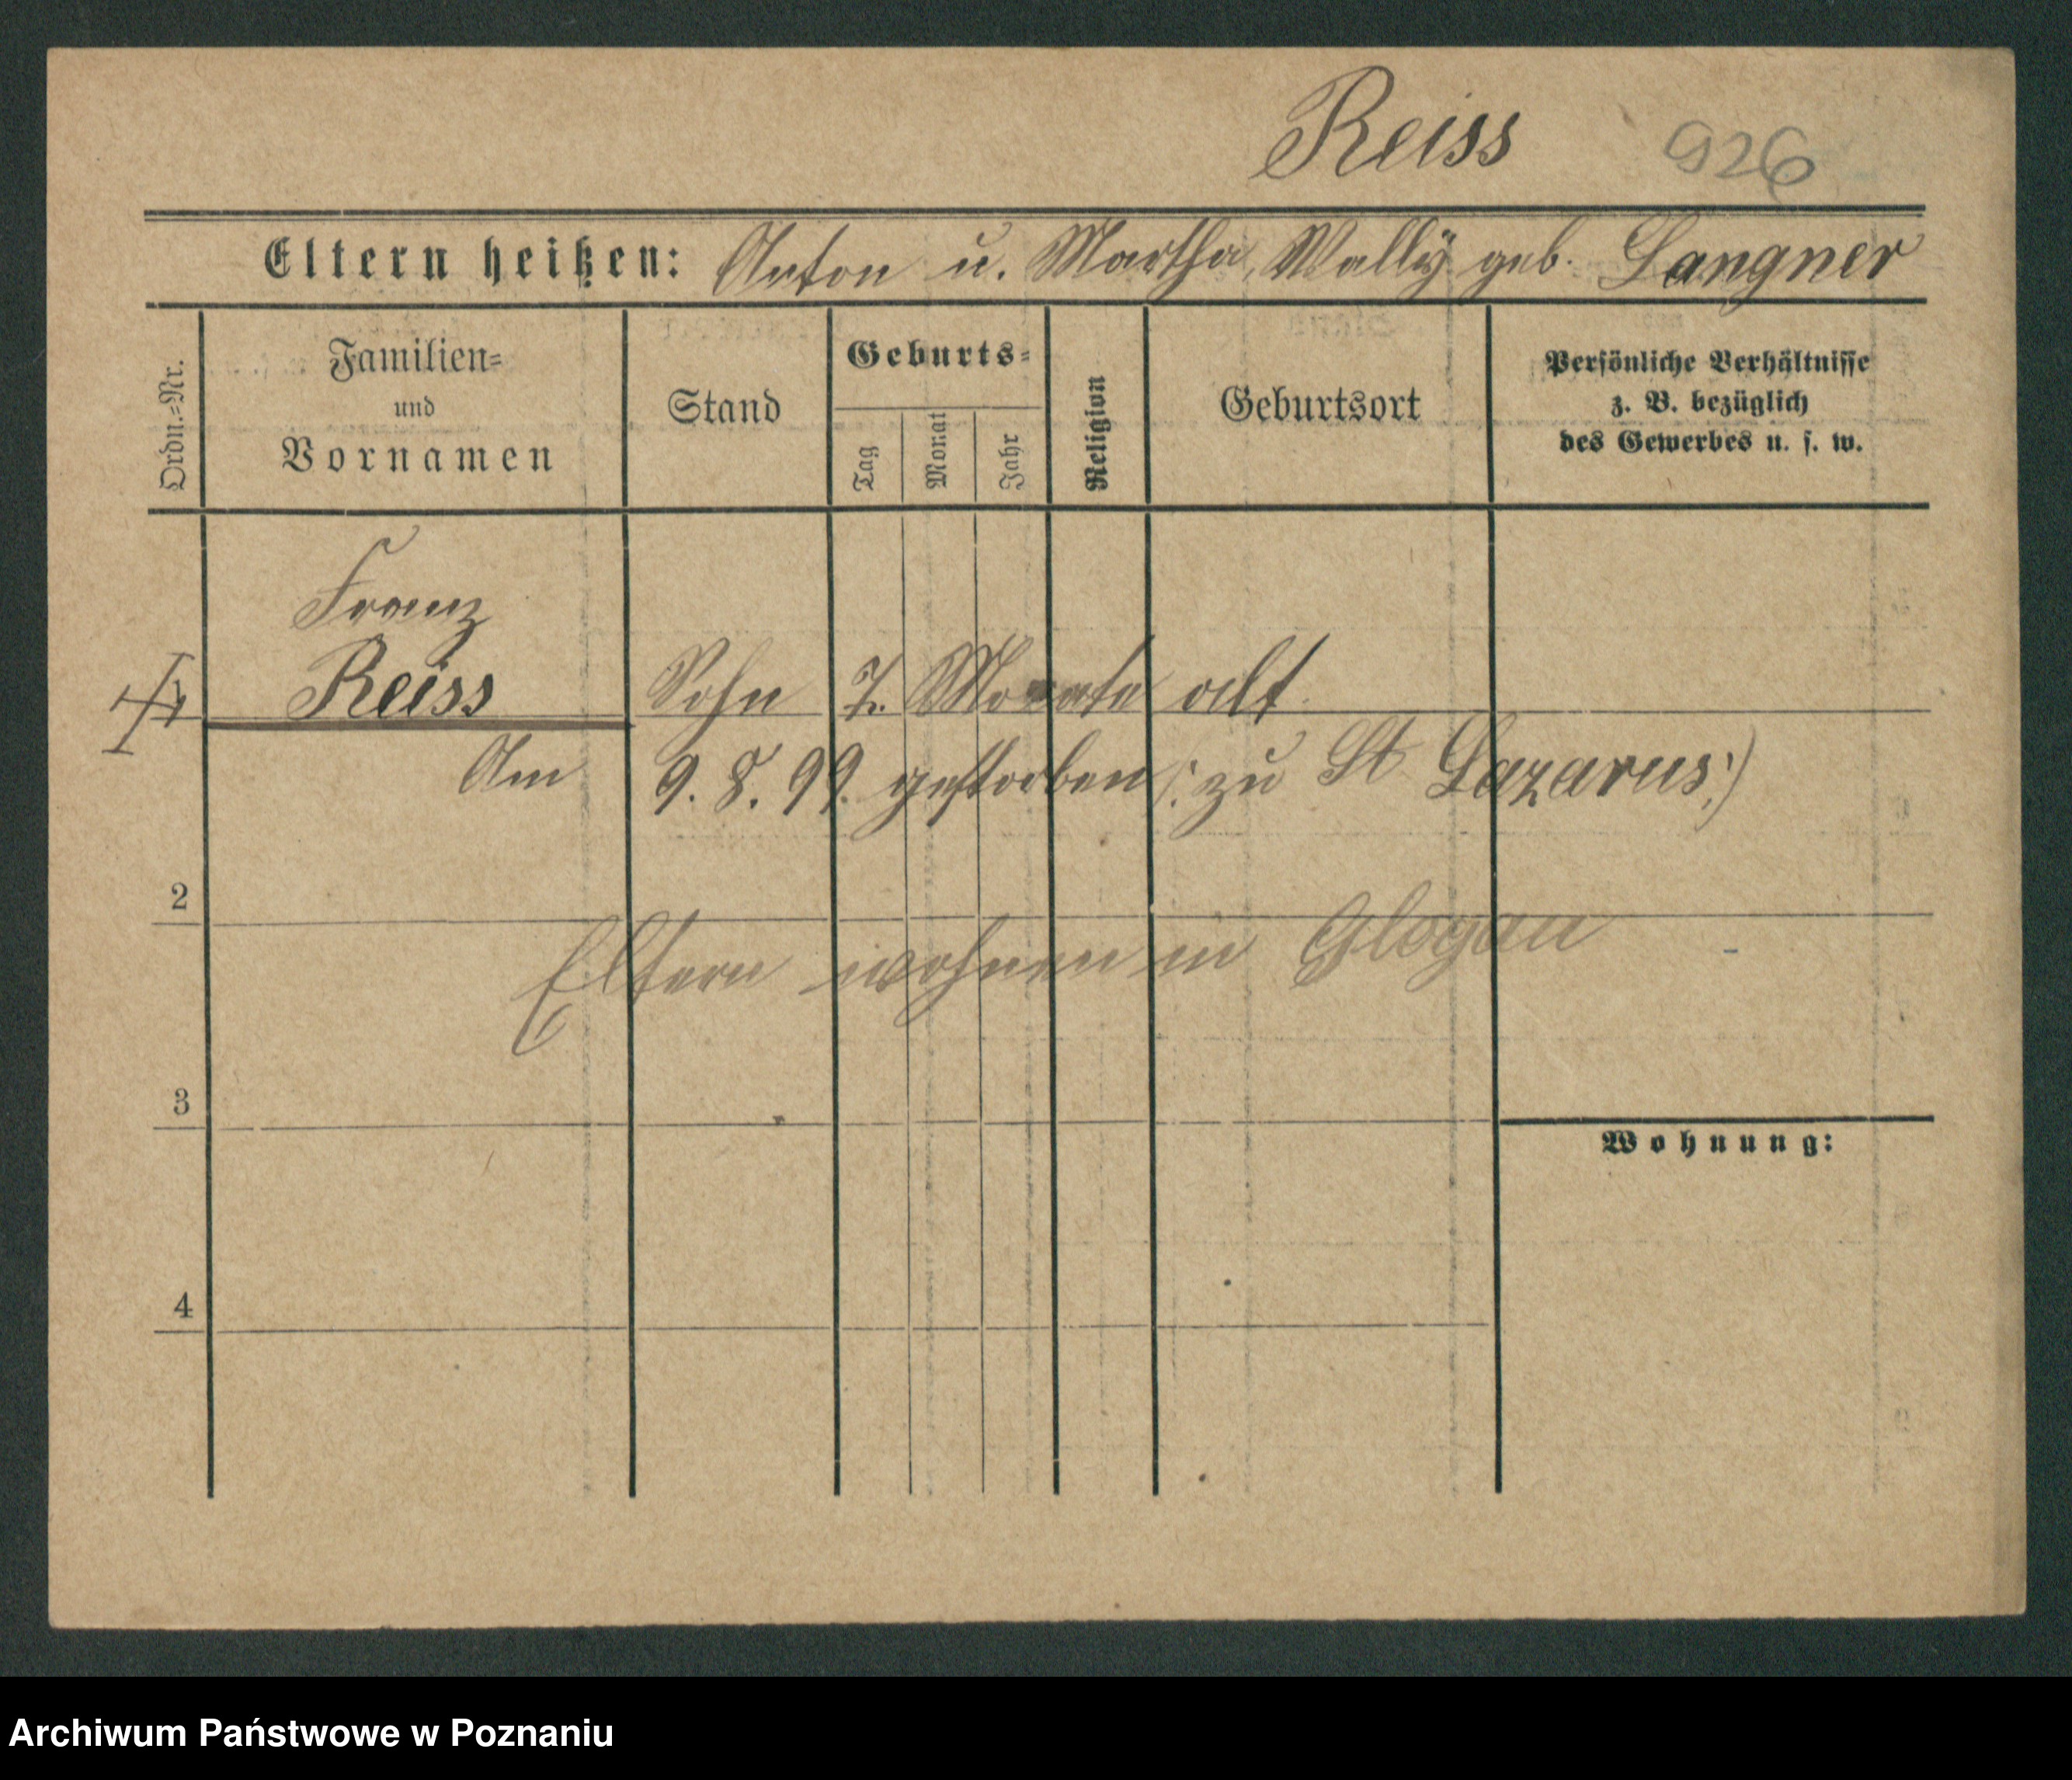 Reiss 926
Eltern heißen: Anton u. Martha, Wally geb. Langner
Ordn.=Nr.
Familien=
und
Vornamen
Stand
Geburts=
Tag
Monat
Jahr
Religion
Geburtsort
Persönliche Verhältnisse
z. B. bezüglich
des Gewerbes u. s. w.
Franz
1 Reiss Sohn 7. Monate alt.
Am 9. 8. 99. gestorben (: zu St Lazarus :)
2
Eltern wohnen in Glogau
3
Wohnung:
4
Archiwum Państwowe w Poznaniu